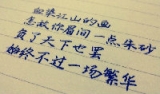 如深江山的画
怎敌你眉间一点朱砂
负了天下也罢
始终不过一场繁华